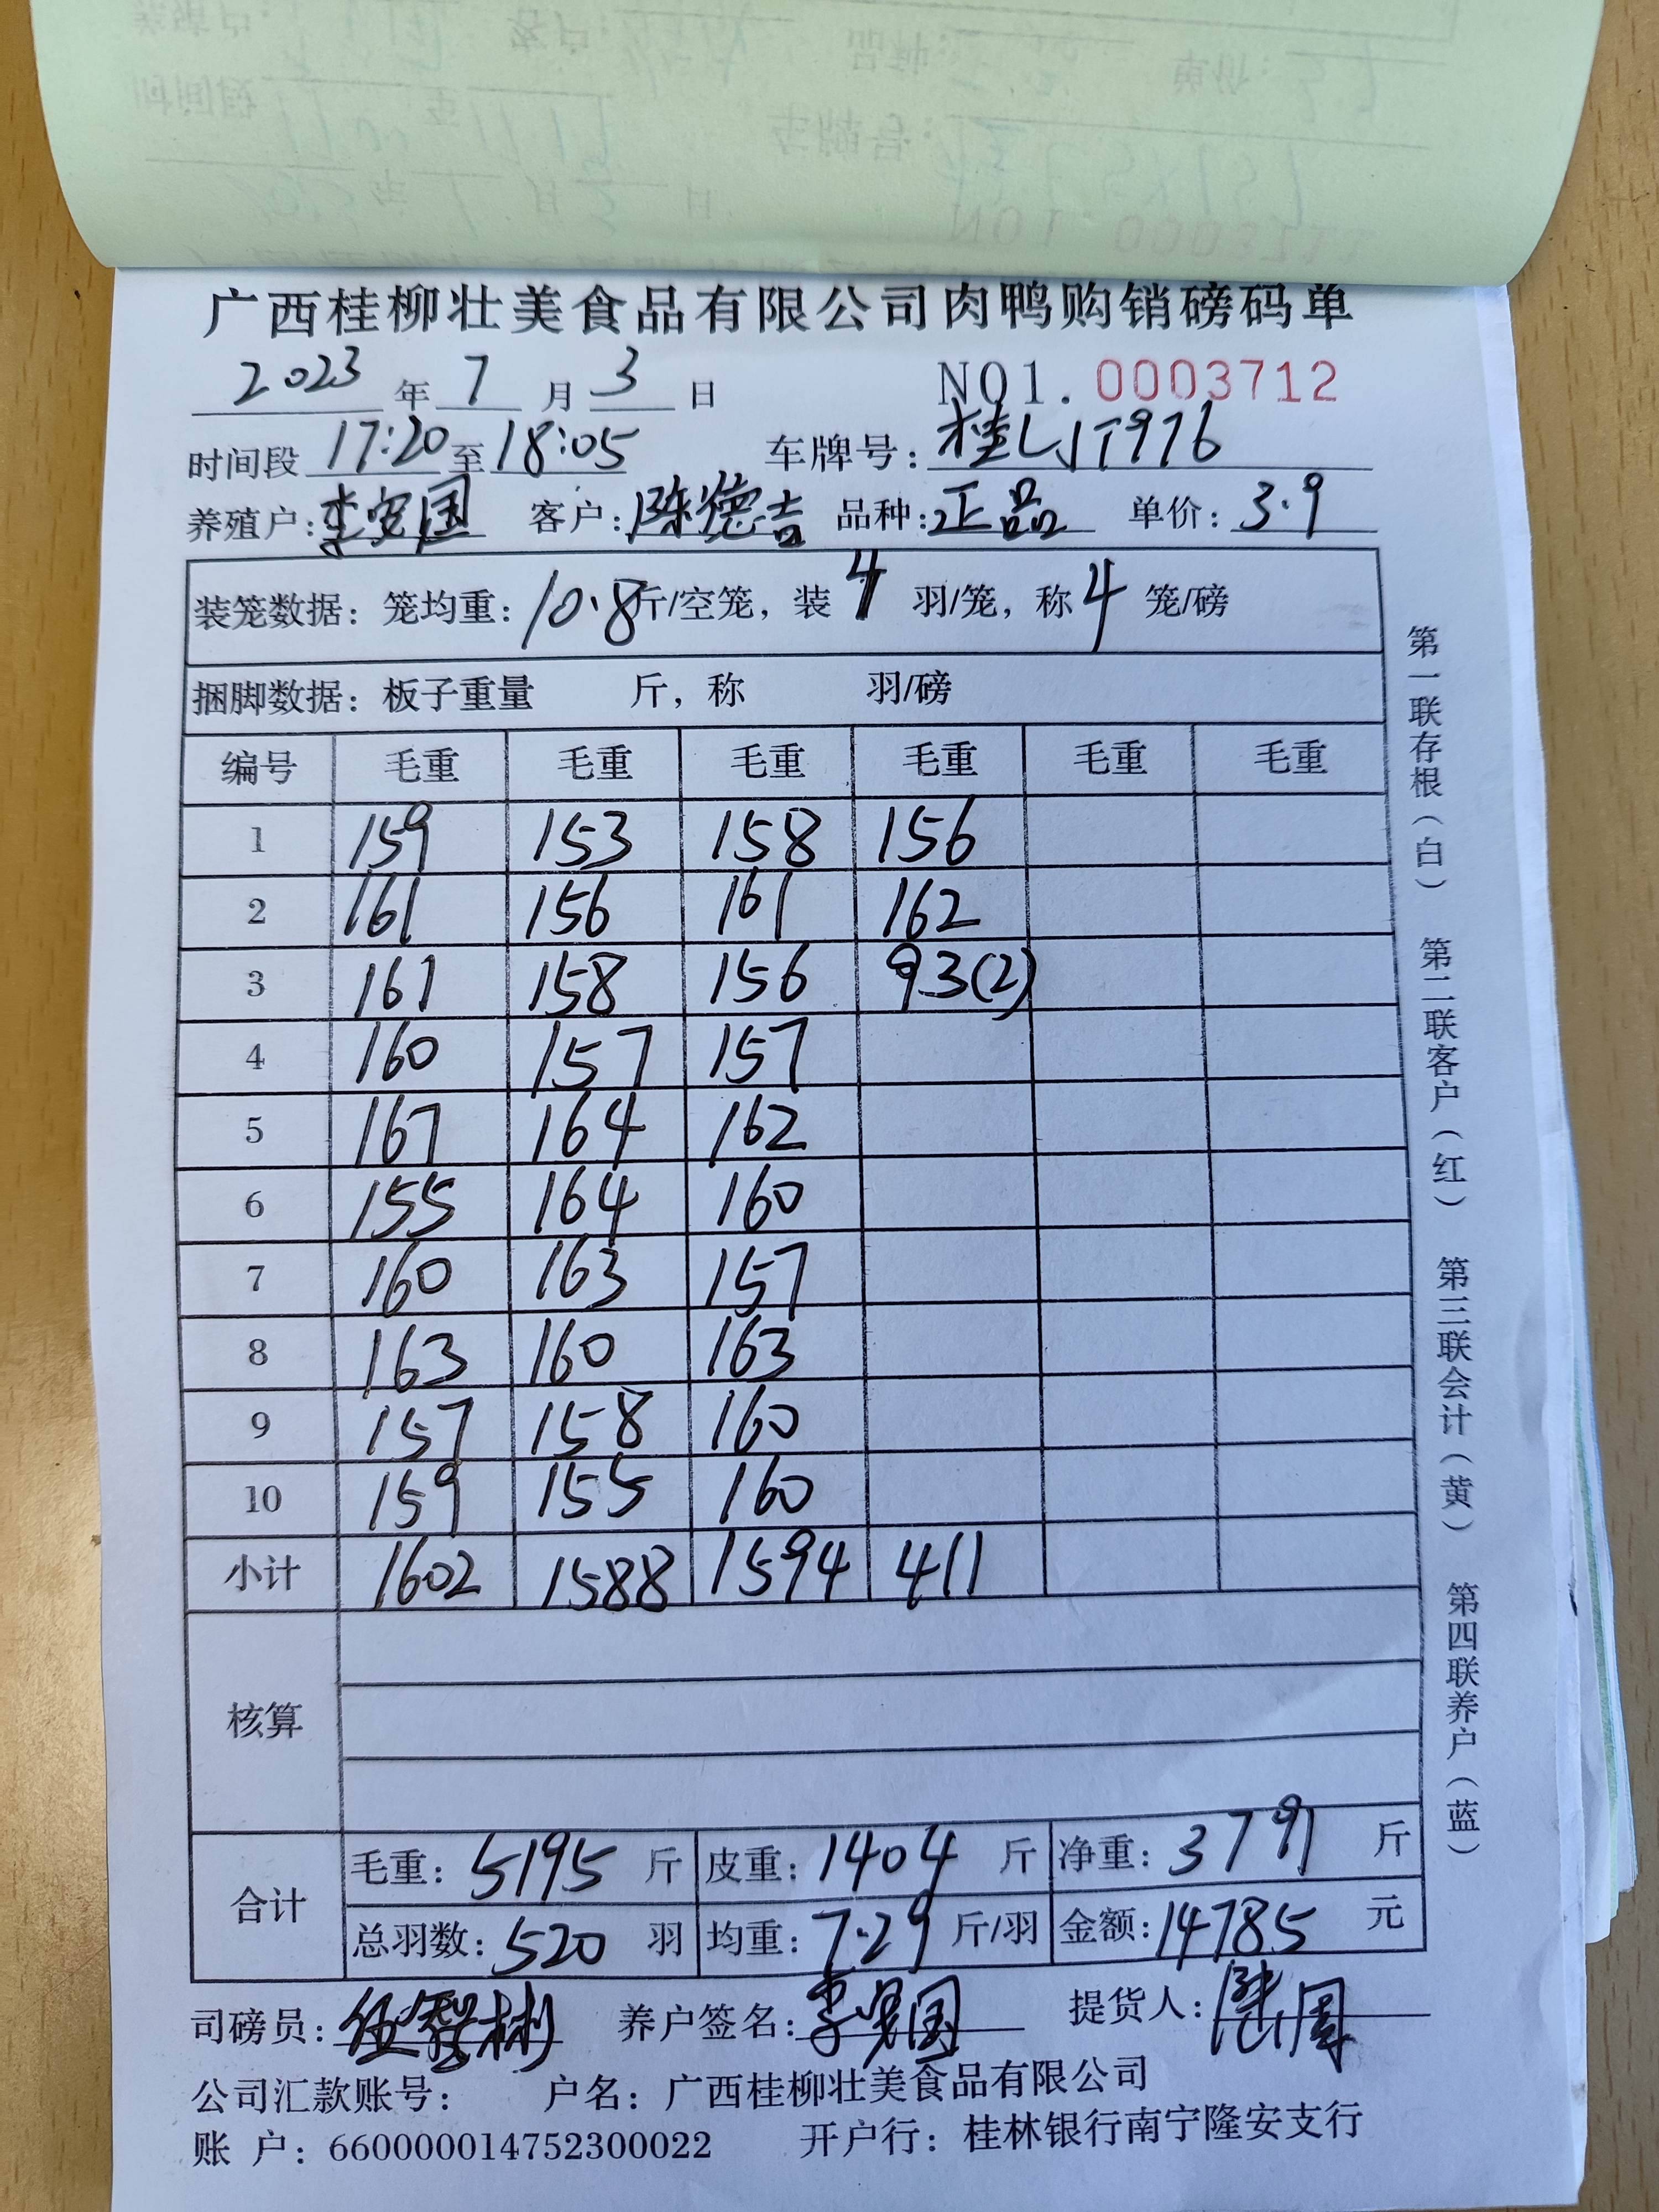 广西桂柳壮美食品有限公司肉鸭购销磅码单
2023 年 7 月 3 日 NO1. 0003712
时间段 17:20 至 18:05 车牌号: 桂LJT976
养殖户: 客户: 陈德吉 品种: 正品 单价: 3.9
装笼数据: 笼均重: 10.8 斤/空笼, 装 4 羽/笼, 称 4 笼/磅
捆脚数据: 板子重量 斤, 称 羽/磅
编号 毛重 毛重 毛重 毛重 毛重 毛重
1 159 153 158 156
2 161 156 161 162
3 161 158 156 93(2)
4 160 157 157
5 167 164 162
6 155 164 160
7 160 163 157
8 163 160 163
9 157 158 160
10 159 155 160
小计 1602 1588 1594 411
核算
合计
毛重: 5195 斤 皮重: 1404 斤 净重: 3791 斤
总羽数: 520 羽 均重: 7.29 斤/羽 金额: 14785 元
司磅员: 养户签名: 提货人:
公司汇款账号: 户名: 广西桂柳壮美食品有限公司
账 户: 660000014752300022 开户行: 桂林银行南宁隆安支行
第一联存根(白) 第二联客户(红) 第三联会计(黄) 第四联养户(蓝)